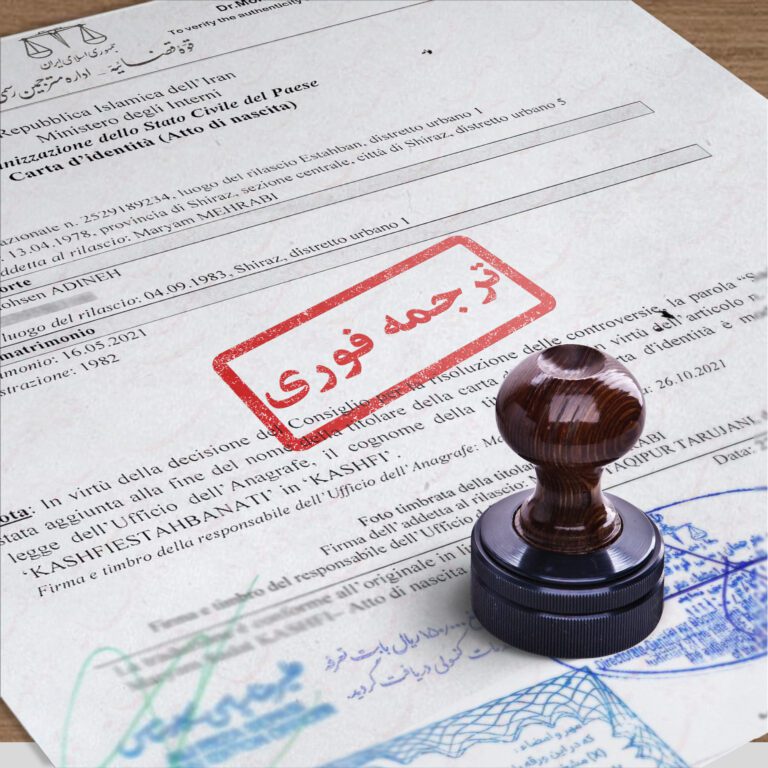 Dr.MO
To verify the authenticity
جمهوری اسلامی ایران
قوه قضائیه - اداره مترجمین رسمی
Repubblica Islamica dell'Iran
Ministero degli Interni
nizzazione dello Stato Civile del Paese
Carta d'identità (Atto di nascita)
azionale n. 2529189234, luogo del rilascio Estahban, distretto urbano 1
. 13.04.1978, provincia di Shiraz, sezione centrale, città di Shiraz, distretto urbano 5
addetta al rilascio: Maryam MEHRABI
orte
ohsen ADINEH
luogo del rilascio: 04.09.1983, Shiraz, distretto urbano 1
matrimonio
imonio: 16.05.2021
strazione: 1982
ترجمه فوری
ota: In virtù della decisione del Consiglio per la risoluzione delle controversie, la parola "S
stata aggiunta alla fine del nome della titolare della carta virtù dell'articolo n.
legge dell'Ufficio dell'Anagrafe, il cognome della tit carta d'identità è mo
'KASHFIESTAHBANATI' in 'KASHFI'.
Firma e timbro della responsabile dell'Ufficio dell'Anagrafe: Ma
ta: 26.10.2021
Foto timbrata della titola
Firma dell'addetta al rilascio: M RABI
Firma e timbro del responsabile dell'Ufficio TAQIPUR TARUJANI
Data: 2
conforme all'originale in li
KASHFI– Atto di nascita
ریال بابت
کنسولی دریافت گردید.
مهر و امضاء:
که در این ورقه